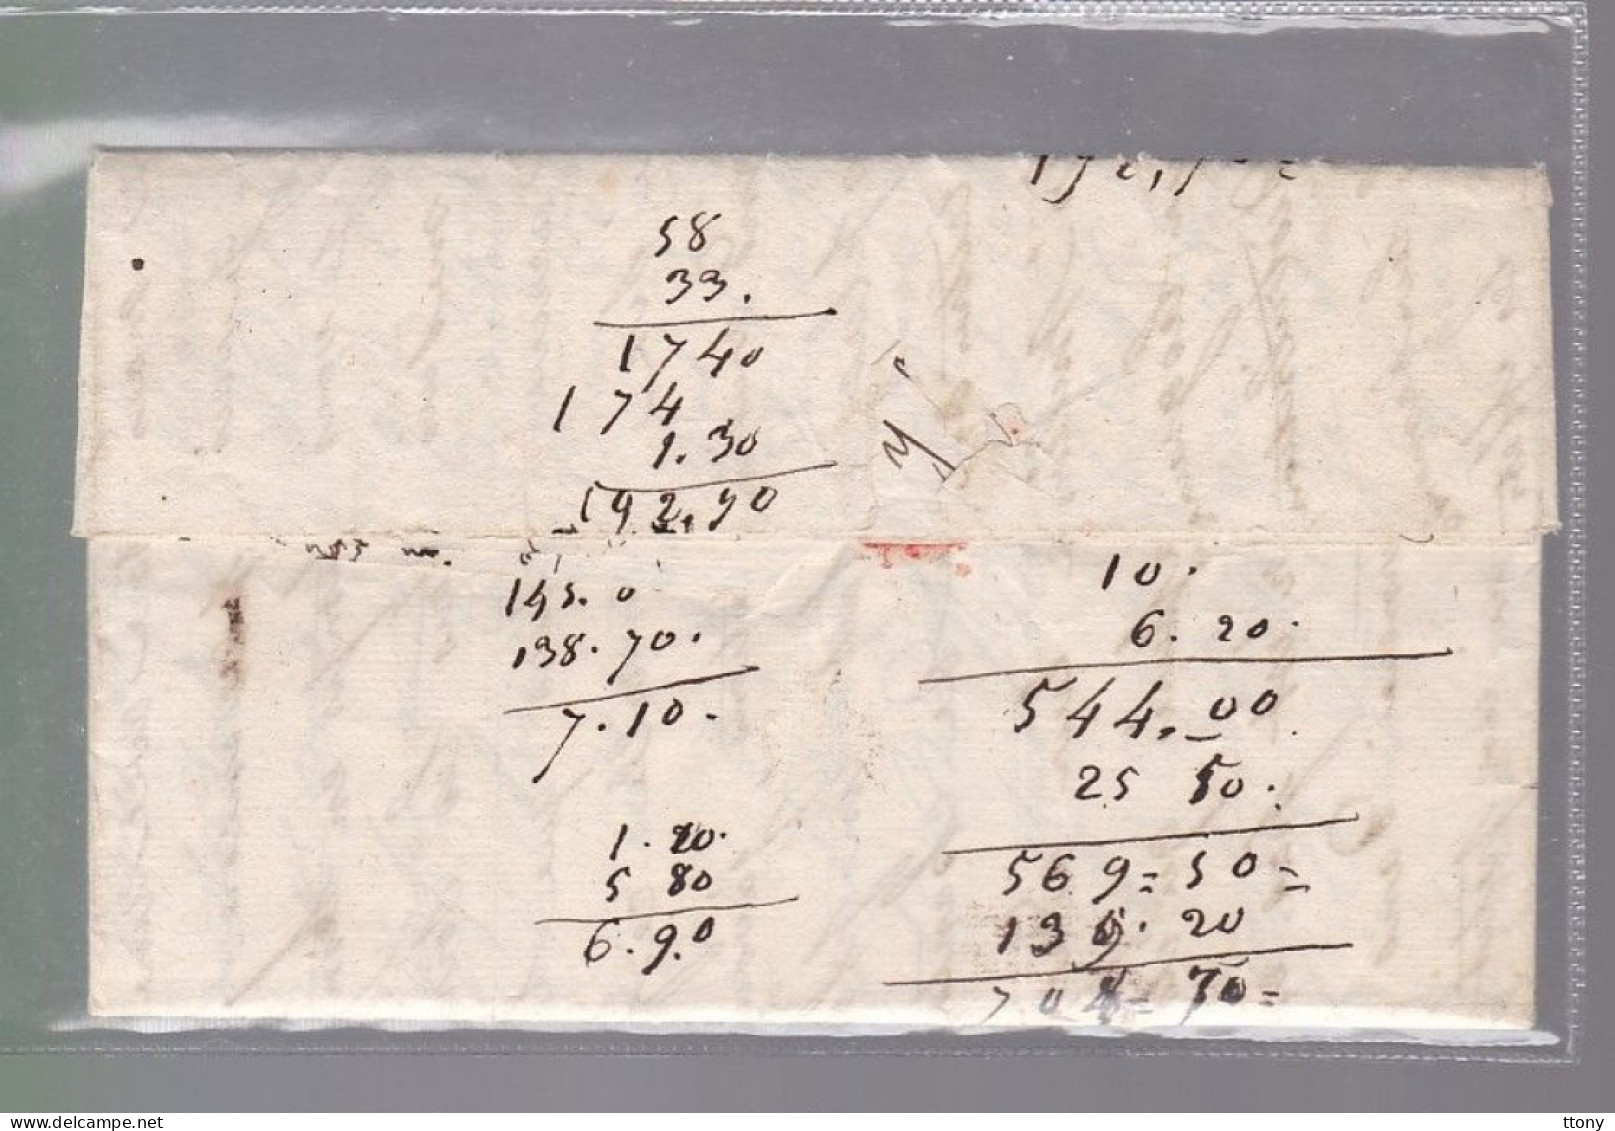 58
33.
1740
174
1.30
192,70
145. 0
138.70.
7.10.
1.20.
5 80
6.90
10.
6.20.
544.00
25 50.
569=50=
135.20
704=70=
ttony